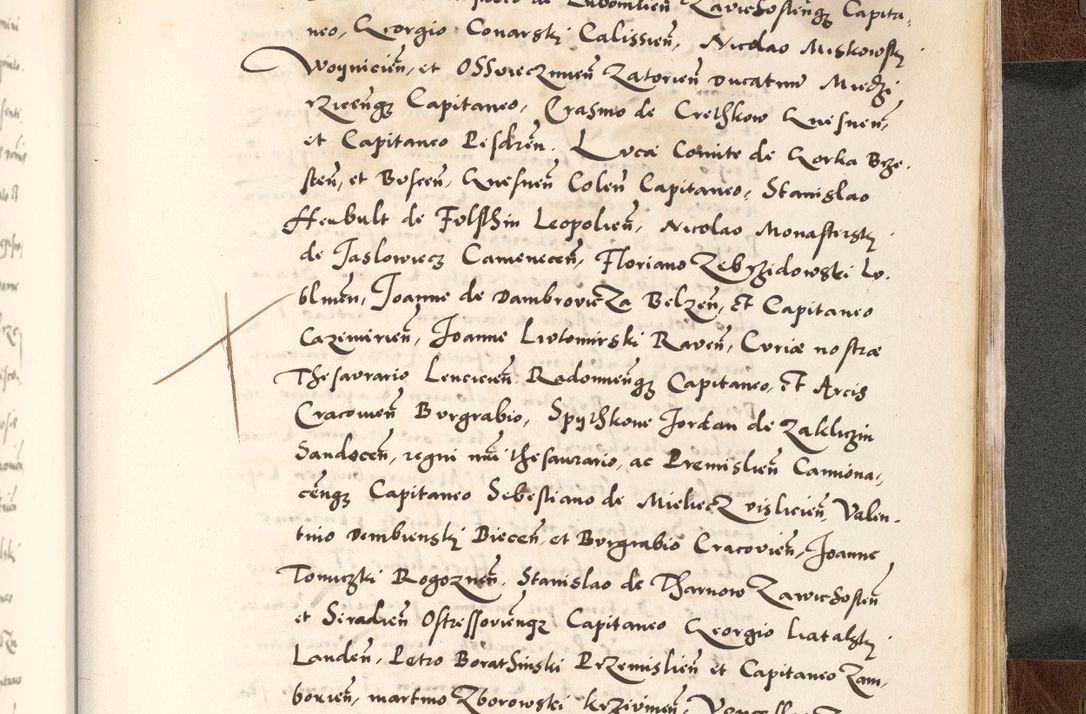 de Lubomlien̄, Zavichosteng̃ Capita-
neo, Georgio Conarski Calissien̄, Nicolao Miskowski
Woynicien̄, et Osswieczimen̄ Zatorien̄ Ducatuu̅ Miedzi
rziceng̃ Capitaneo, Erasmo de Crethkow Gnesnen̄,
et Capitaneo Pesdren̄. Luca Comite de Gorka Brze-
sten̄, et Buscen̄, Gnesnen̄ Colen̄ Capitaneo, Stanislao
Herbult de Fulsthin Leopolien̄, Nicolao Monasterski
de Jaslowiecz Camenecen̄, Floriano Zebrzidowski Lu-
blinen̄, Joanne de Dambrovicza Belzen̄, et Capitaneo
Cazimirien̄, Joanne Lutomirski Raven̄, Curiæ nostræ
Thesaurario Lencicien̄ Radomieng̃ Capitaneo, et Arcis
Cracovien̄ Burgrabio, Spythkone Jordan de Zakliczin
Sandecen̄, regni nr̄i thesaurario, ac Premislien̄ Camiona-
ceng̃ Capitaneo Sebestiano de Mieliecz vislicien̄, Valen-
tino Dembienski Biecen̄, et Burgrabio Cracovien̄, Joanne
Tomiczki Rogoznen̄, Stanislao de Tharnow Zawichosten̄
et Siradien̄ Ostressovieng̃ Capitaneo Georgio Latalski
Landen̄, Petro Borathinski Przemislien̄ et Capitaneo Zam-
borien̄, martino Zborowski krzivinen̄,